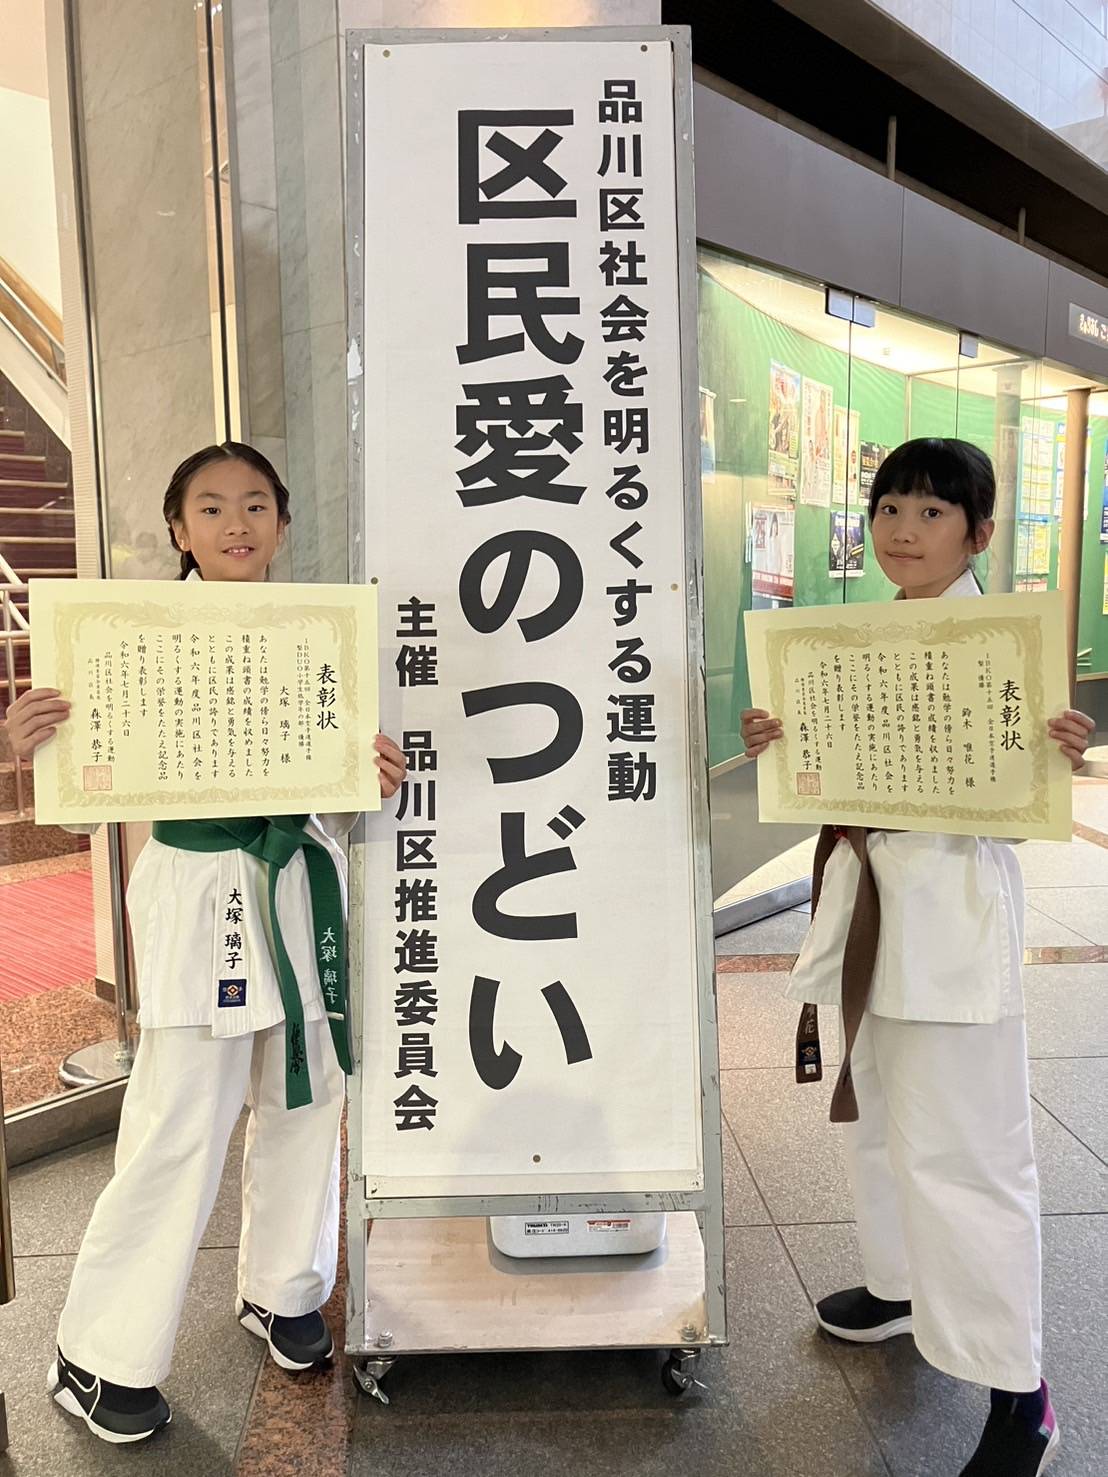 品川区社会を明るくする運動
区民愛のつどい
主催 品川区推進委員会
表彰状
IBKO第十五回 全日本空手道選手権
型 優勝
鈴木 唯花 様
あなたは勉学の傍ら日々努力を
積重ね頭書の成績を収めました
この成果は感銘と勇気を与える
とともに区民の誇りであります
令和六年度品川区社会を
明るくする運動の実施にあたり
ここにその栄誉をたたえ記念品
を贈り表彰します
令和六年七月二十六日
品川区社会を明るくする運動
品川区長 森澤 恭子
表彰状
大塚 璃子 様
あなたは勉学の傍ら日々努力を
積重ね頭書の成績を収めました
この成果は感銘と勇気を与える
とともに区民の誇りであります
令和六年度品川区社会を
明るくする運動の実施にあたり
ここにその栄誉をたたえ記念品
を贈り表彰します
令和六年七月二十六日
品川区社会を明るくする運動
品川区長 森澤 恭子
大塚 璃子
大塚 璃子
唯花